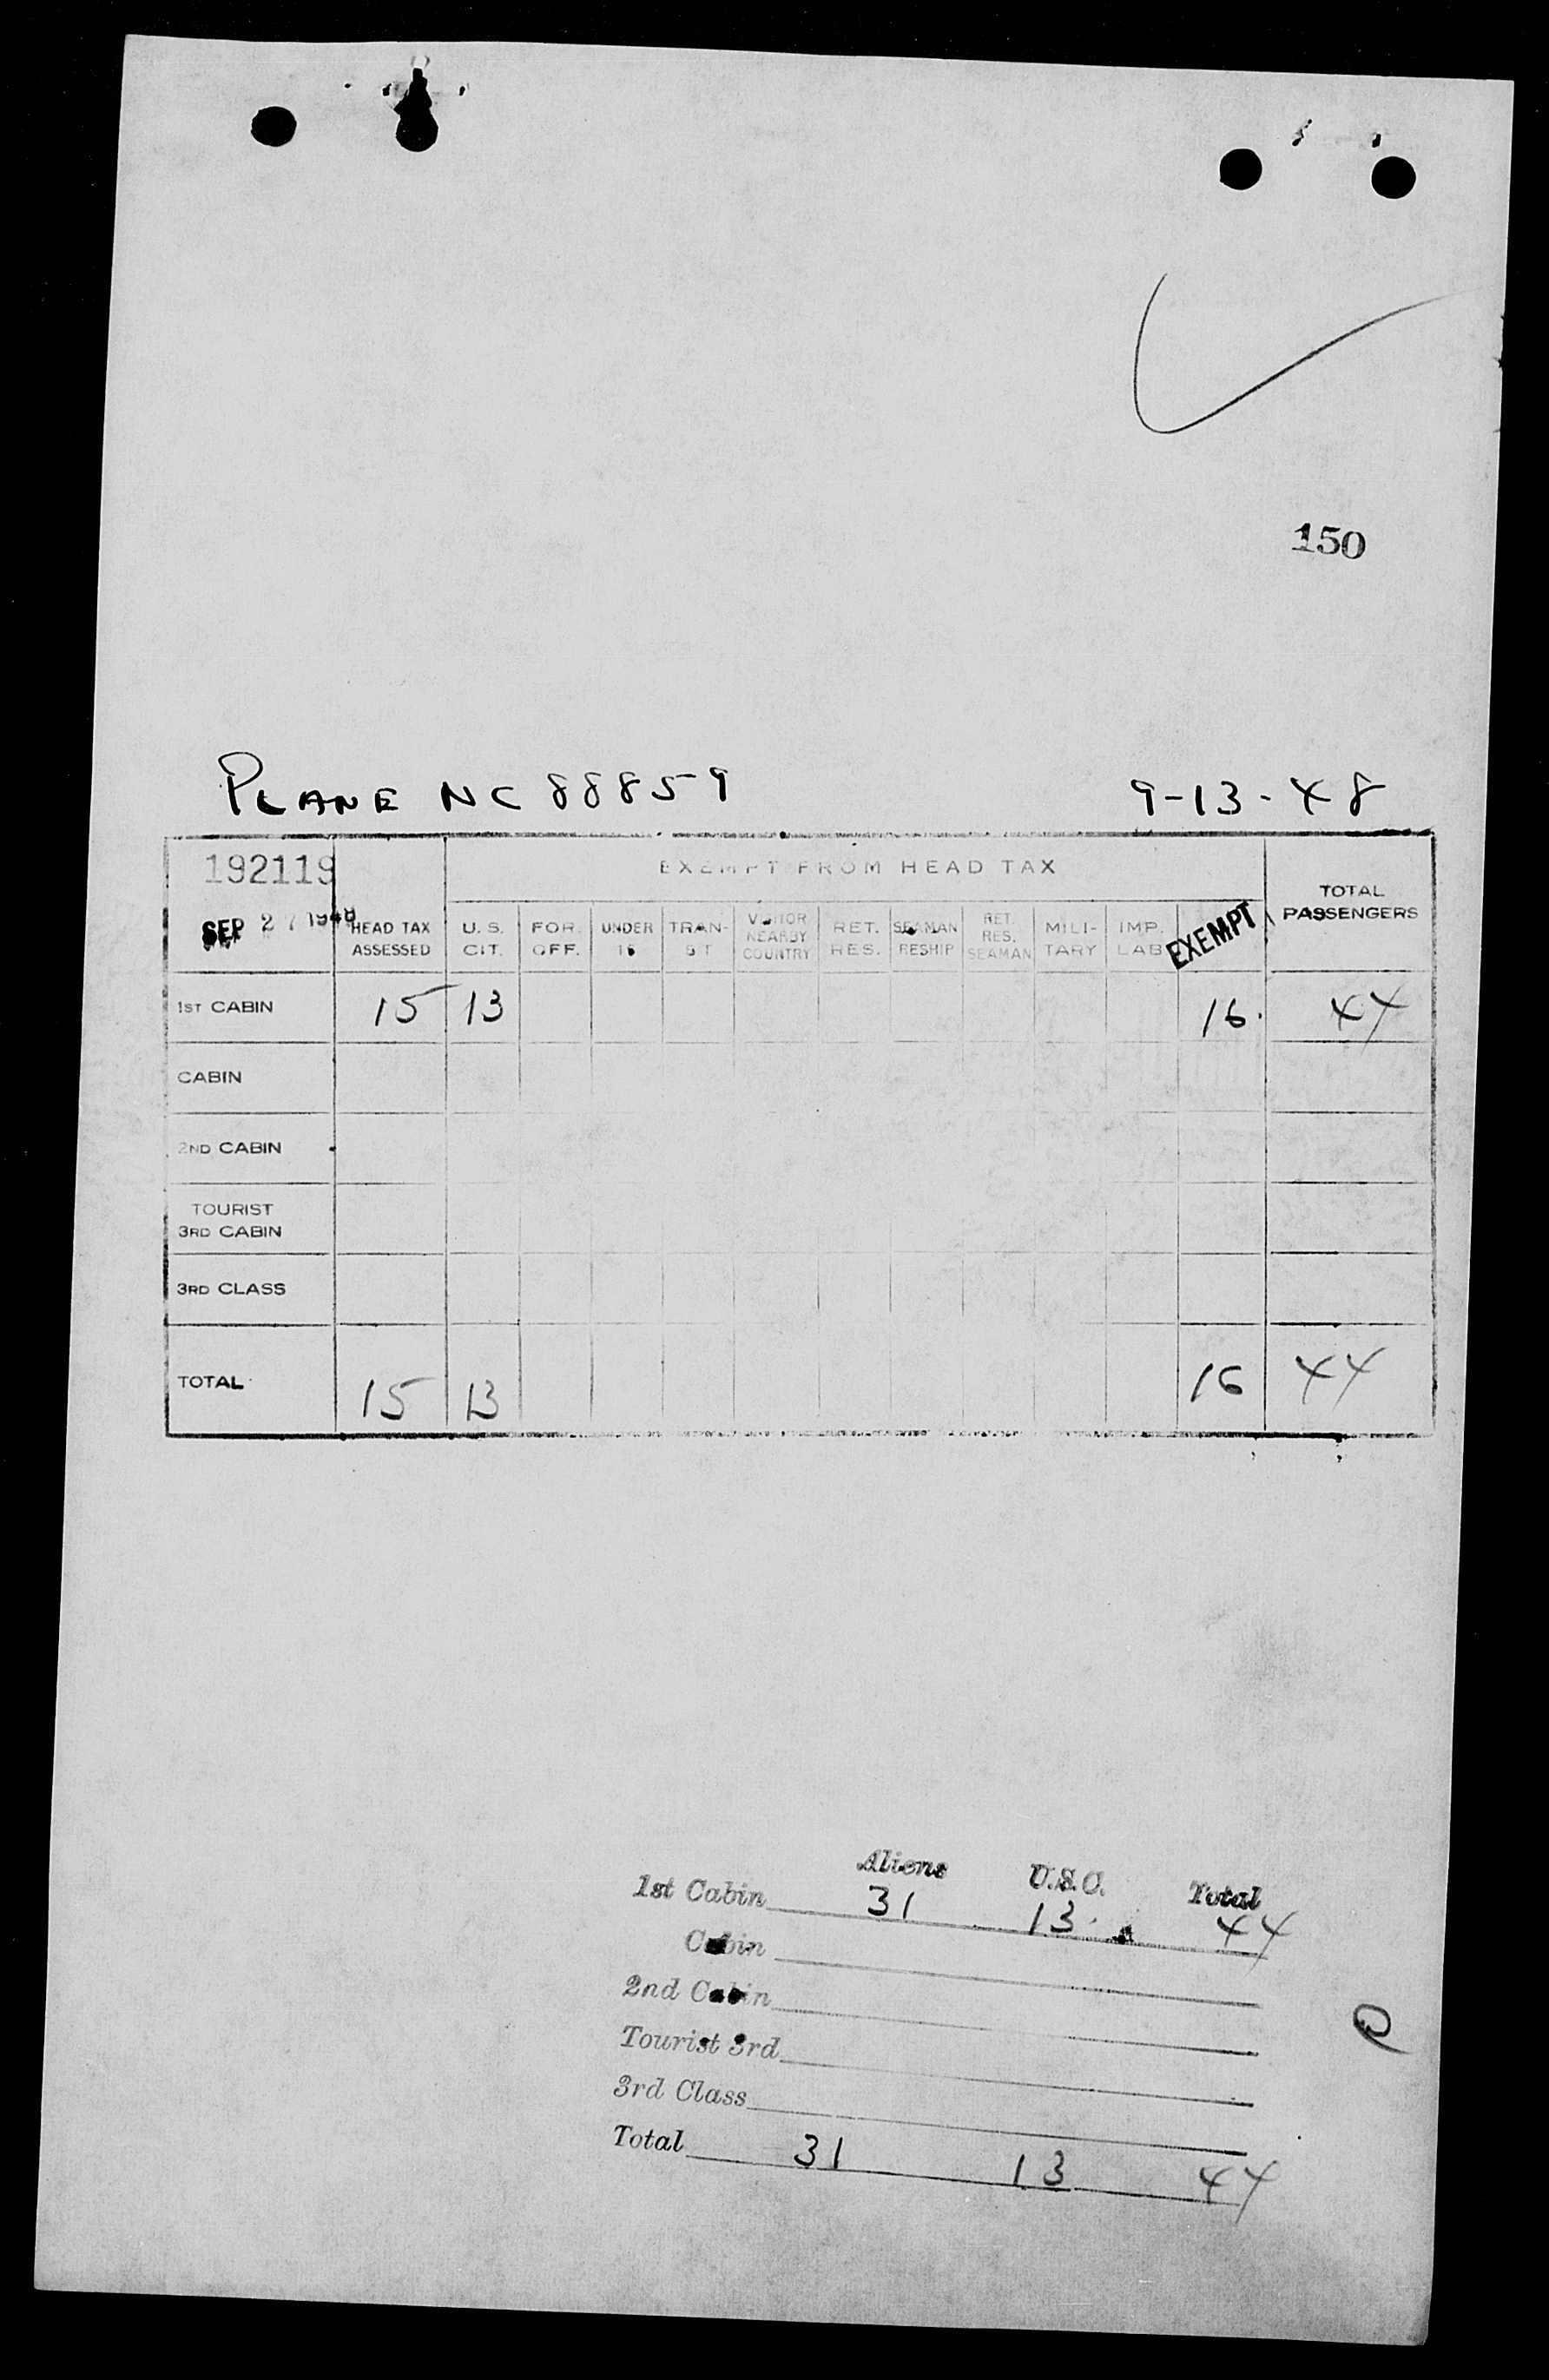 150
PLANE NC 88859 9-13-48
192119
EXEMPT FROM HEAD TAX
SEP 27 1948
HEAD TAX ASSESSED
U. S. CIT.
FOR. OFF.
UNDER 16
TRAN- SIT
VISITOR NEARBY COUNTRY
RET. RES.
SEAMAN RESHIP
RET. RES. SEAMAN
MILI- TARY
IMP. LAB
EXEMPT
TOTAL PASSENGERS
1ST CABIN 15 13 16 44
CABIN
2ND CABIN
TOURIST
3RD CABIN
3RD CLASS
TOTAL 15 13 16 44
Aliens U.S.C. Total
1st Cabin 31 13 44
Cabin
2nd Cabin
Tourist 3rd
3rd Class
Total 31 13 44